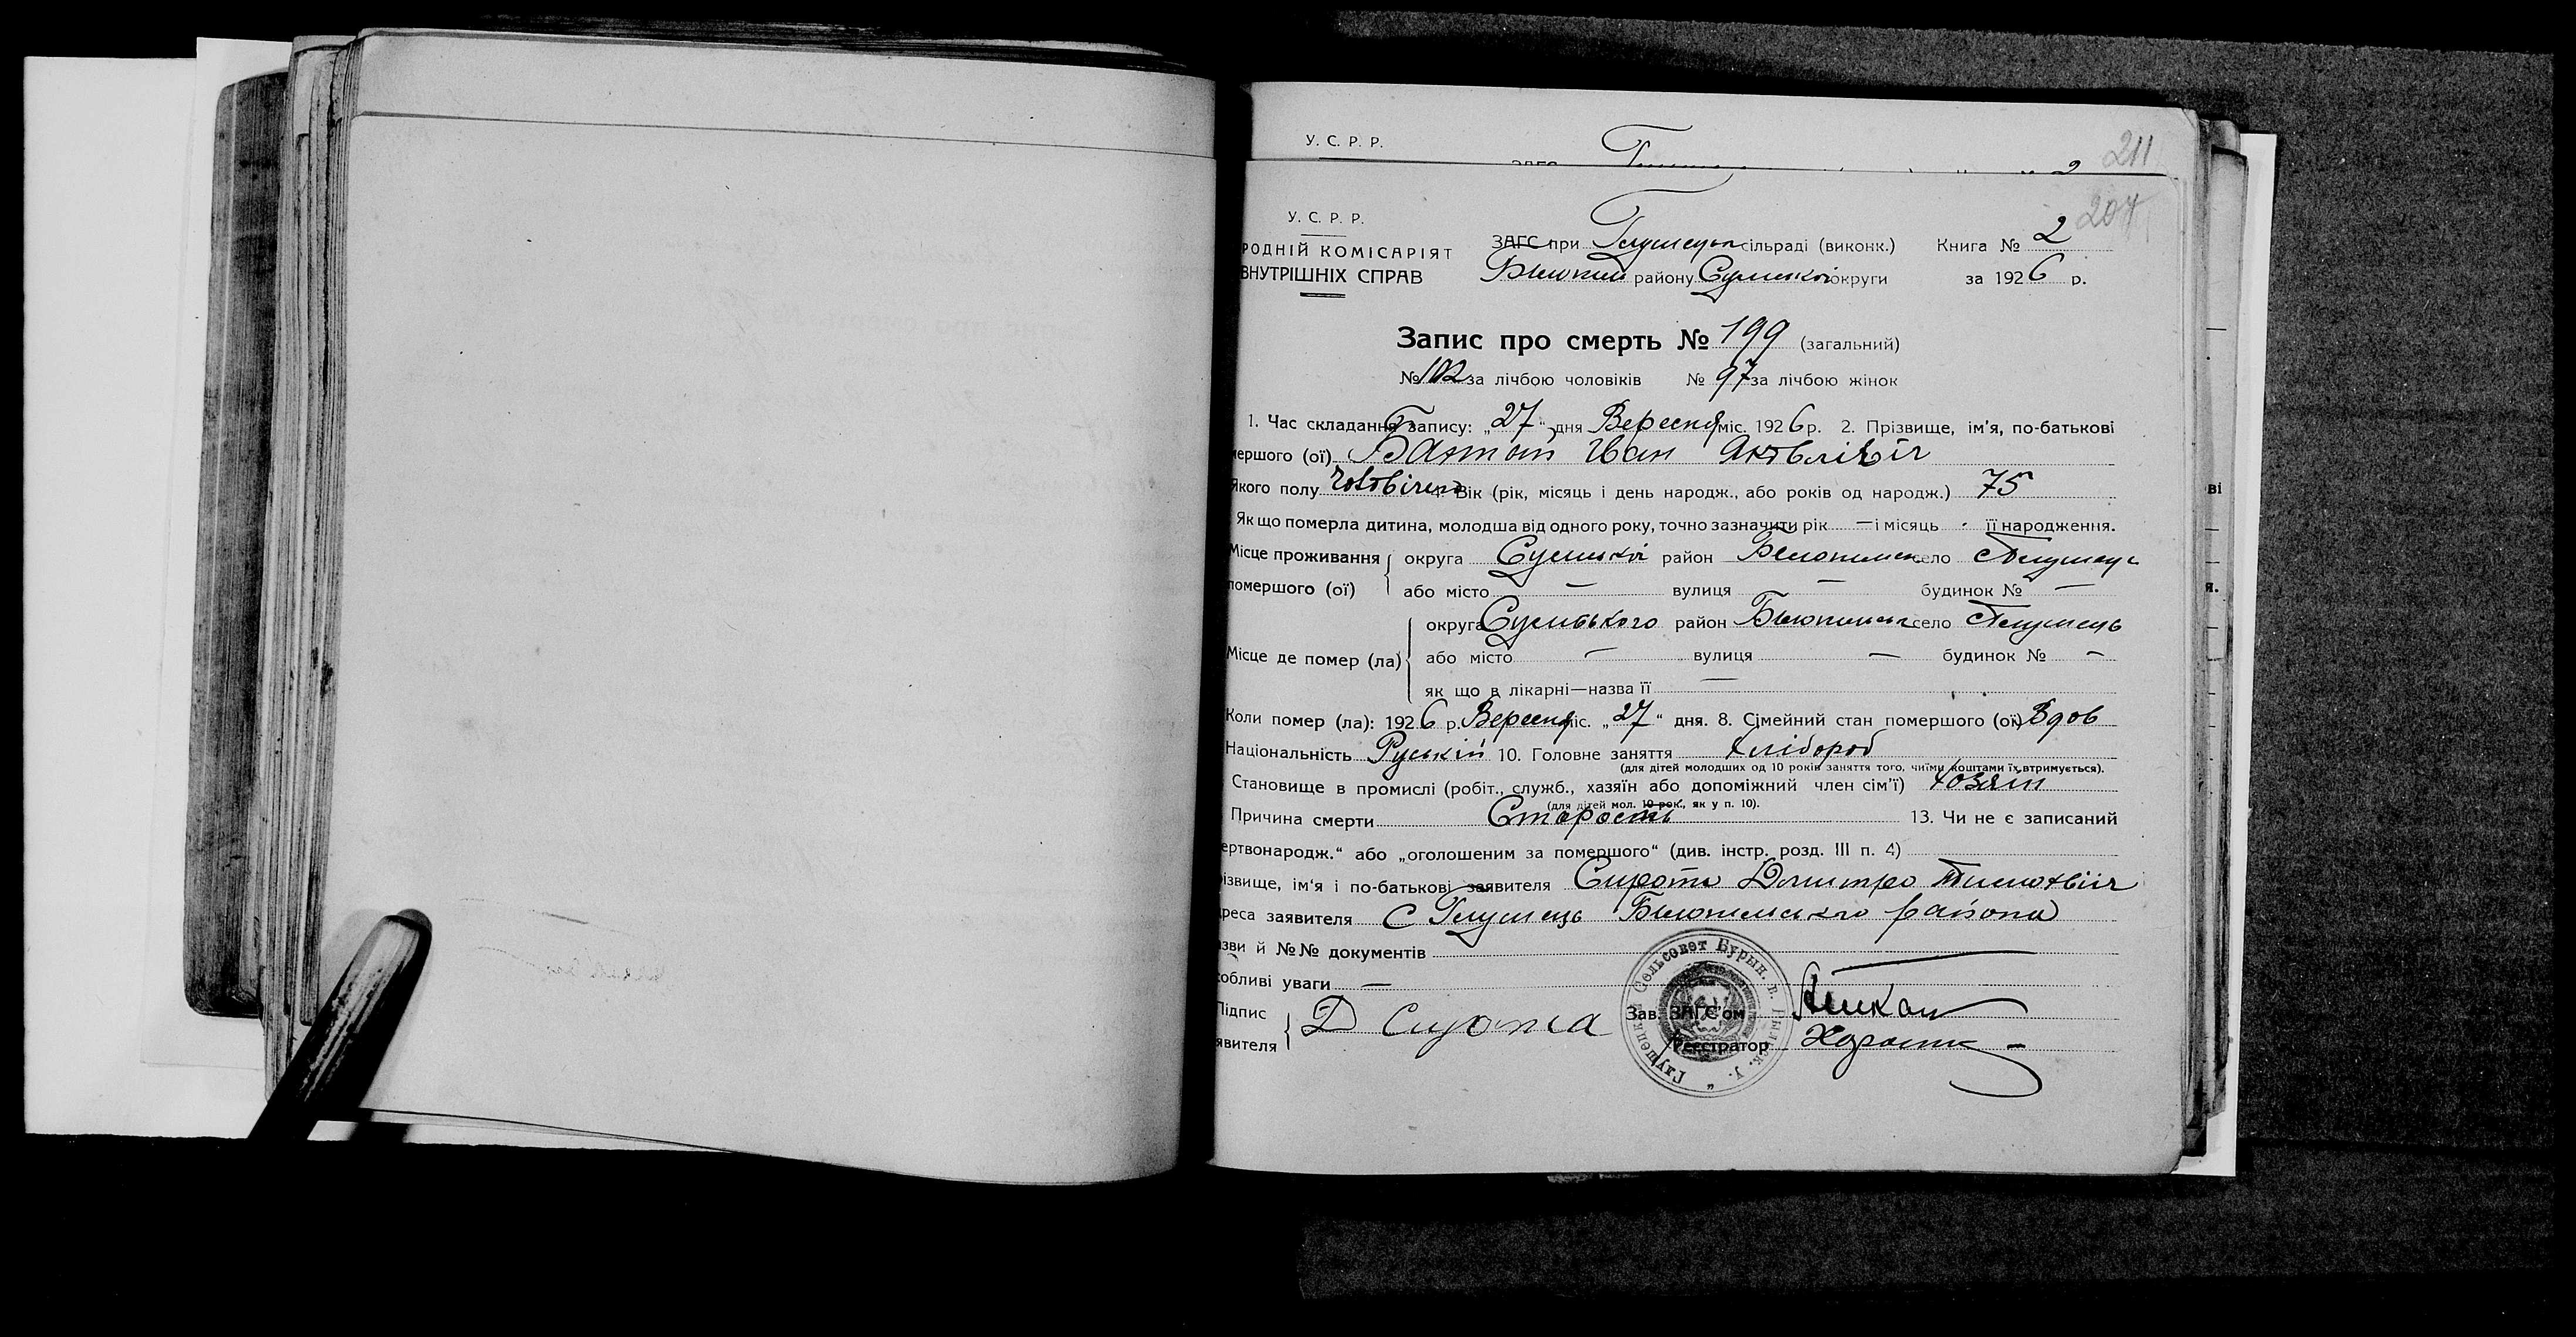 У. С. Р. Р.
211
ЗАГС 2
207
У. С. Р. Р.
РОДНІЙ КОМІСАРІЯТ
ВНУТРІШНІХ СПРАВ
ЗАГС при Глушець сільраді (виконк.) Книга № 2
району Сумської округи за 1926 р.
Запис про смерть № 199 (загальний)
№ 102 за лічбою чоловіків № 97 за лічбою жінок
1. Час складання запису: „27“ дня Вересня міс. 1926 р. 2. Прізвище, ім'я, по-батькові
мершого (ої) Іван Яковлівіч
Якого полу Вік (рік, місяць і день народж., або років од народж.) 75
Як що померла дитина, молодша від одного року, точно зазначити рік — і місяць - її народження.
Місце проживання округа Сумської район село Глушець
помершого (ої) або місто — вулиця — будинок № —
округа Сумського район село Глушець
Місце де помер (ла) або місто — вулиця — будинок № —
як що в лікарні—назва її —
Коли помер (ла): 1926 р. Вересня міс. „27“ дня. 8. Сімейний стан помершого (ої) Вдов
Національність Руській 10. Головне заняття Хлібороб
(для дітей молодших од 10 років заняття того, чиїми коштами їх втримується).
Становище в промислі (робіт., служб., хазяїн або допоміжний член сім'ї) Хозяін
(для дітей мол. 10 рок., як у п. 10).
Причина смерти Старость 13. Чи не є записаний
ертвонародж.“ або „оголошеним за помершого“ (див. інстр. розд. III п. 4)
ізвище, ім'я і по-батькові заявителя Сирота Дмитро
реса заявителя с Глушець района
зви й №№ документів
обливі уваги —
Підпис
явителя Д Сирота
Зав. ЗАГС'ом
Реєстратор
Глушецкий Сельсовет Бурын. в. Рыльск. у.
ві
я.